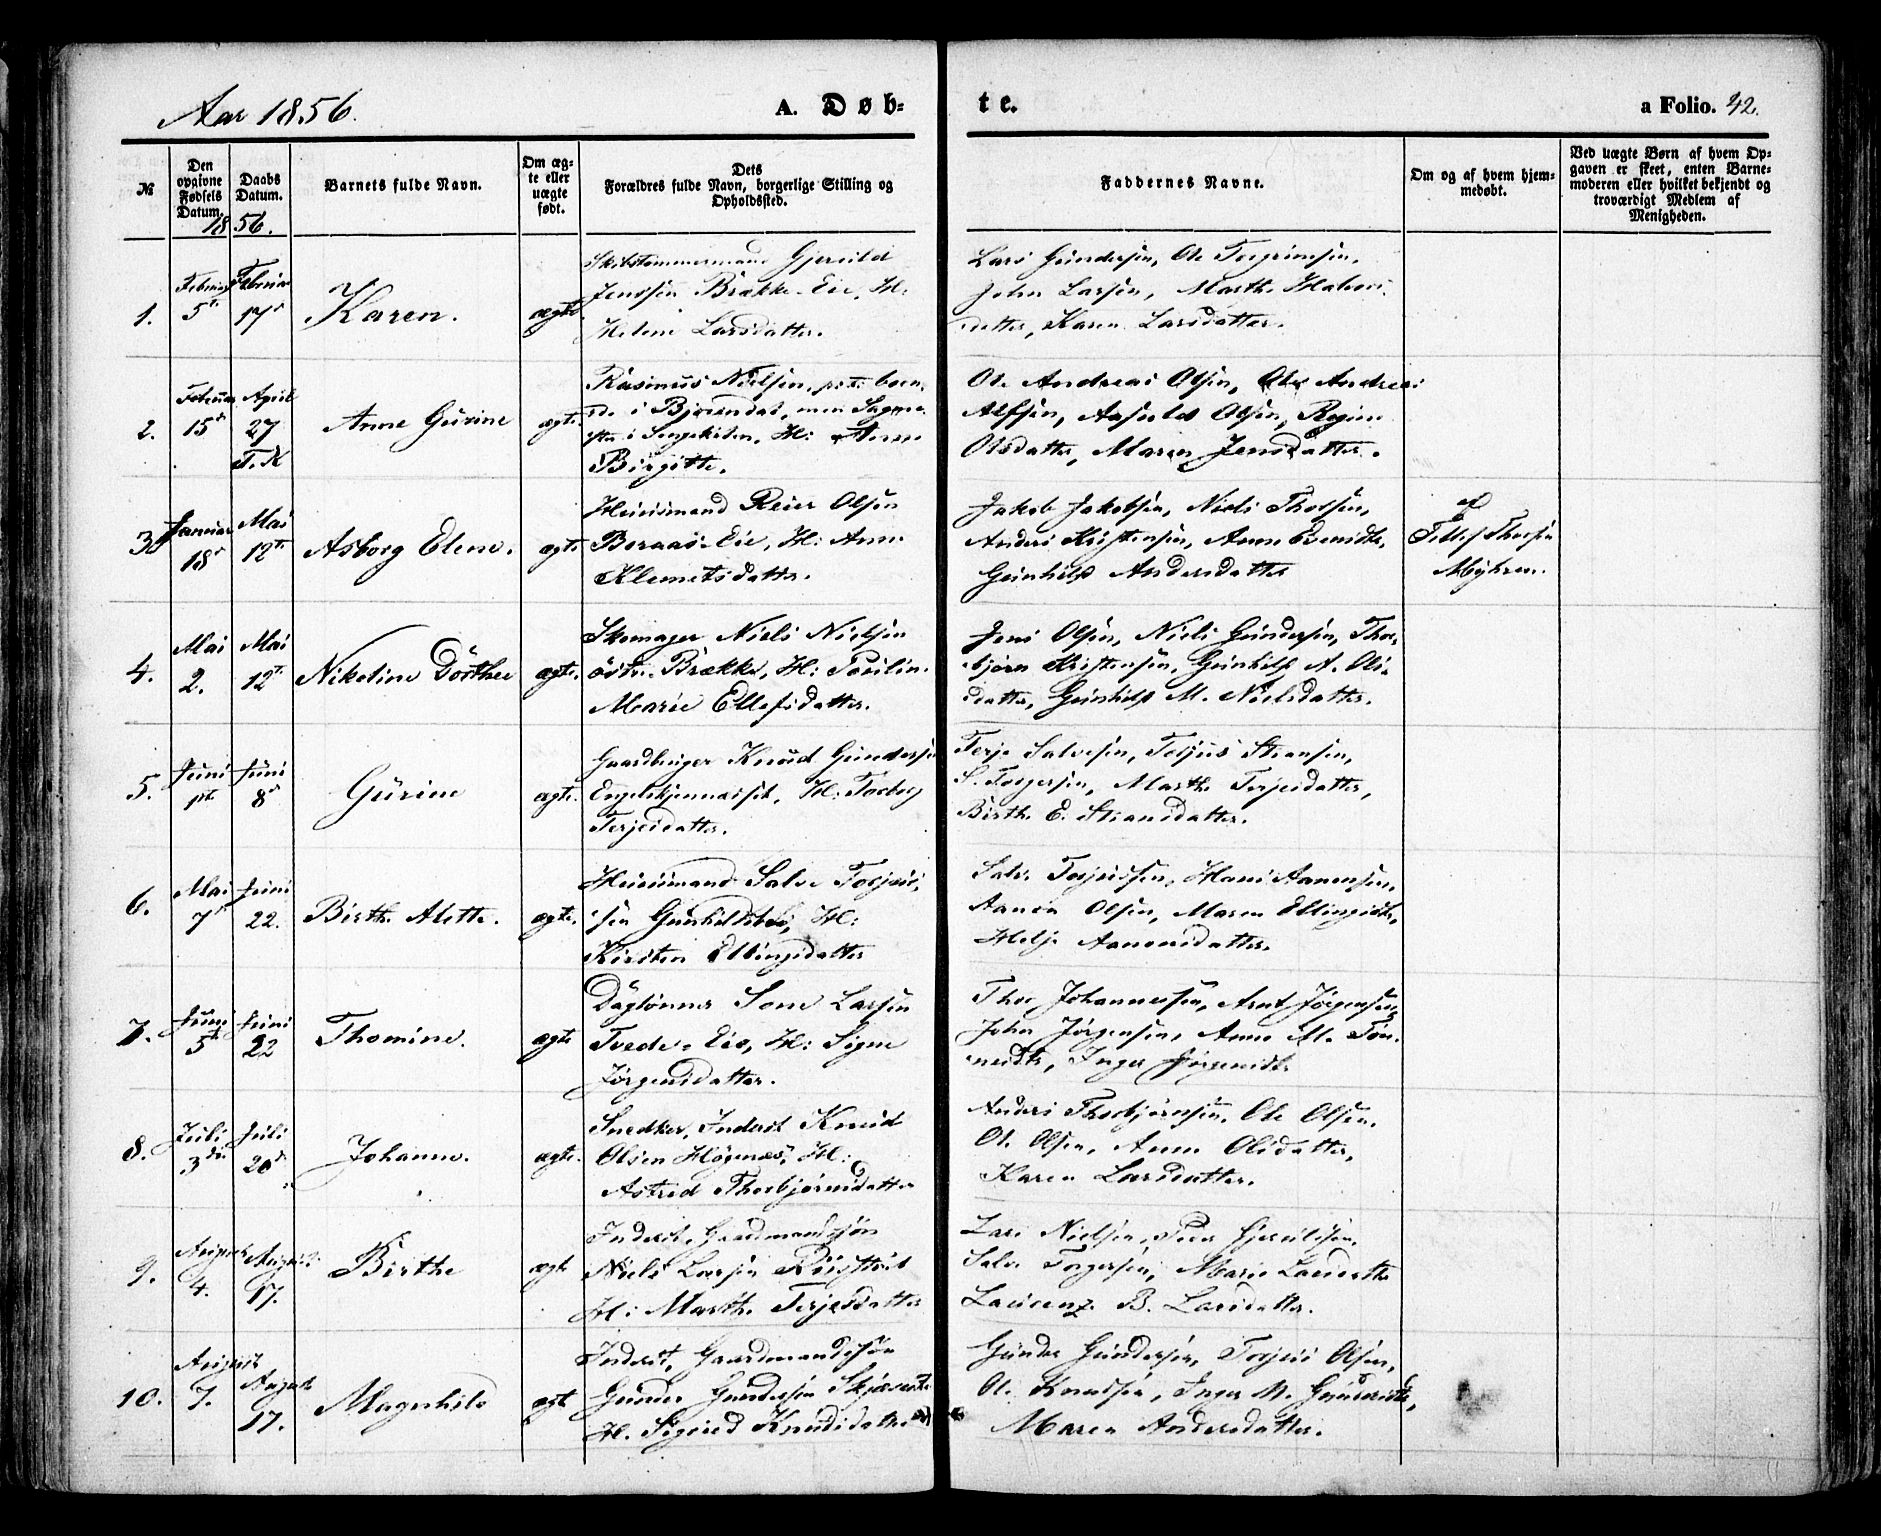 Aar 1856. A. Døb- te. a Folio. 42.
№
Den opgivne Fødsels Datum.
Daabs Datum.
1856.
Barnets fulde Navn.
Om ægte eller uægte født.
Dets Forældres fulde Navn, borgerlige Stilling og Opholdssted.
Faddernes Navne.
Om og af hvem hjemmedøbt.
Ved uægte Børn af hvem Opgaven er skeet, enten Barnemoderen eller hvilket bekjendt og troværdigt Medlem af Menigheden.
1.
Februar 5te
Februar 17de
Karen.
ægte.
Skibstømmermand Gjeruld
Jenssen Brække-Eie, H:
Helene Larsdatter.
Lars Gundersen, Ole Torgrimsen,
John Larsen, Marthe
datter, Karen Larsdatter.
2.
Februar 15de
April 27
T. K
Anne Gurine
ægte.
Rasmus Nielsen, boen-
de i Bjorendal, men
i H: Anne
Birgitte.
Ole Andreas Olsen, Ole Andreas
Alfsen, Aasuld Olsen, Regine
Olsdatter, Maren Jensdatter.
3.
Januar 18de
Mai 12te
Asborg Elene.
ægte
Huusmand Reier Olsen
Beraas-Eie, H: Anne
Klemetsdatter.
Jakob Jakobsen, Niels Thorsen,
Anders Kristensen, Anne Evensdtr,
Gunhild Andersdatter
af
Tellef Thorsen
Myhren.
4.
Mai 2.
Mai 12te
Nikoline Dorthee
ægte.
Skomager Niels Nielsen
østre Brække, H: Torilin
Marie Ellefsdatter.
Jens Olsen, Niels Gundersen, Thor-
bjørn Kristensen, Gunhild A. Ols-
datter, Gunhild M. Nielsdatter.
5.
Juni 1ste
Juni 8de
Gurine
ægte.
Gaardbruger Knud Gundersen
H: Torborg
Terjesdatter.
Terje Salvesen, Teljus Stiansen,
S. Torgersen, Marthe Terjesdatter,
Birthe E. Stiansdatter.
6.
Mai 7de
Juni 22.
Birthe Alette.
ægte.
Huusmand Salve Torjus-
sen Gunhildsbo, H:
Kirsten Ellingsdatter
Salve Torjussen, Hans Aanonsen,
Aanon Olsen, Maren Ellingsdtr,
Helje Aanonsdatter.
7.
Juni 5te
Juni 22
Thomine.
ægte
Daglønner Tom Larsen
Tvede-Eie, H: Signe
Jørgensdatter.
Thor Johannessen, Arnt Jørgensen,
John Jørgensen, Anne M. Tøn-
nesdtr, Inger Jørgensdtr
8.
Juli 3die
Juli 20de
Johanne.
ægte.
Snedker, Inderst Knud
Olsen Høgenes, H:
Astrid Thorbjørnsdatter
Anders Thorbjørnsen, Ole Olsen,
Ole Olsen, Anne Olsdatter,
Karen Larsdatter.
9.
August 4.
August 17.
Birthe
ægte
Inderst, Gaardmandssøn
Niels Larsen
H: Marthe Terjesdatter
Lars Nielsen, Peer Gjeruldsen,
Salve Torgersen, Marie
Laurenze B. Larsdatter.
10.
August 7.
August 17.
Magnhild
ægte
Inderst, Gaardmandssøn
Gunder Gundersen
H. Sigrid Knudsdatter
Gunder Gundersen, Torjus Olsen,
Ole Knudsen, Inger M. Gundersdtr,
Maren Andersdatter.